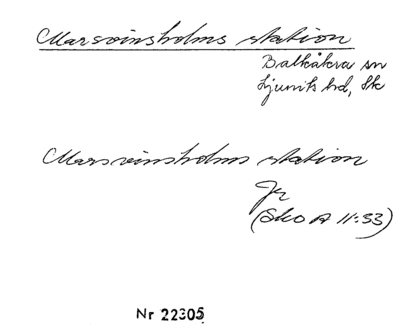 Marsvinsholms station
Balkåkra sn
Ljunits hd, Sk
Marsvinsholms station
Jr
(SkO A 11:33)
Nr 22305